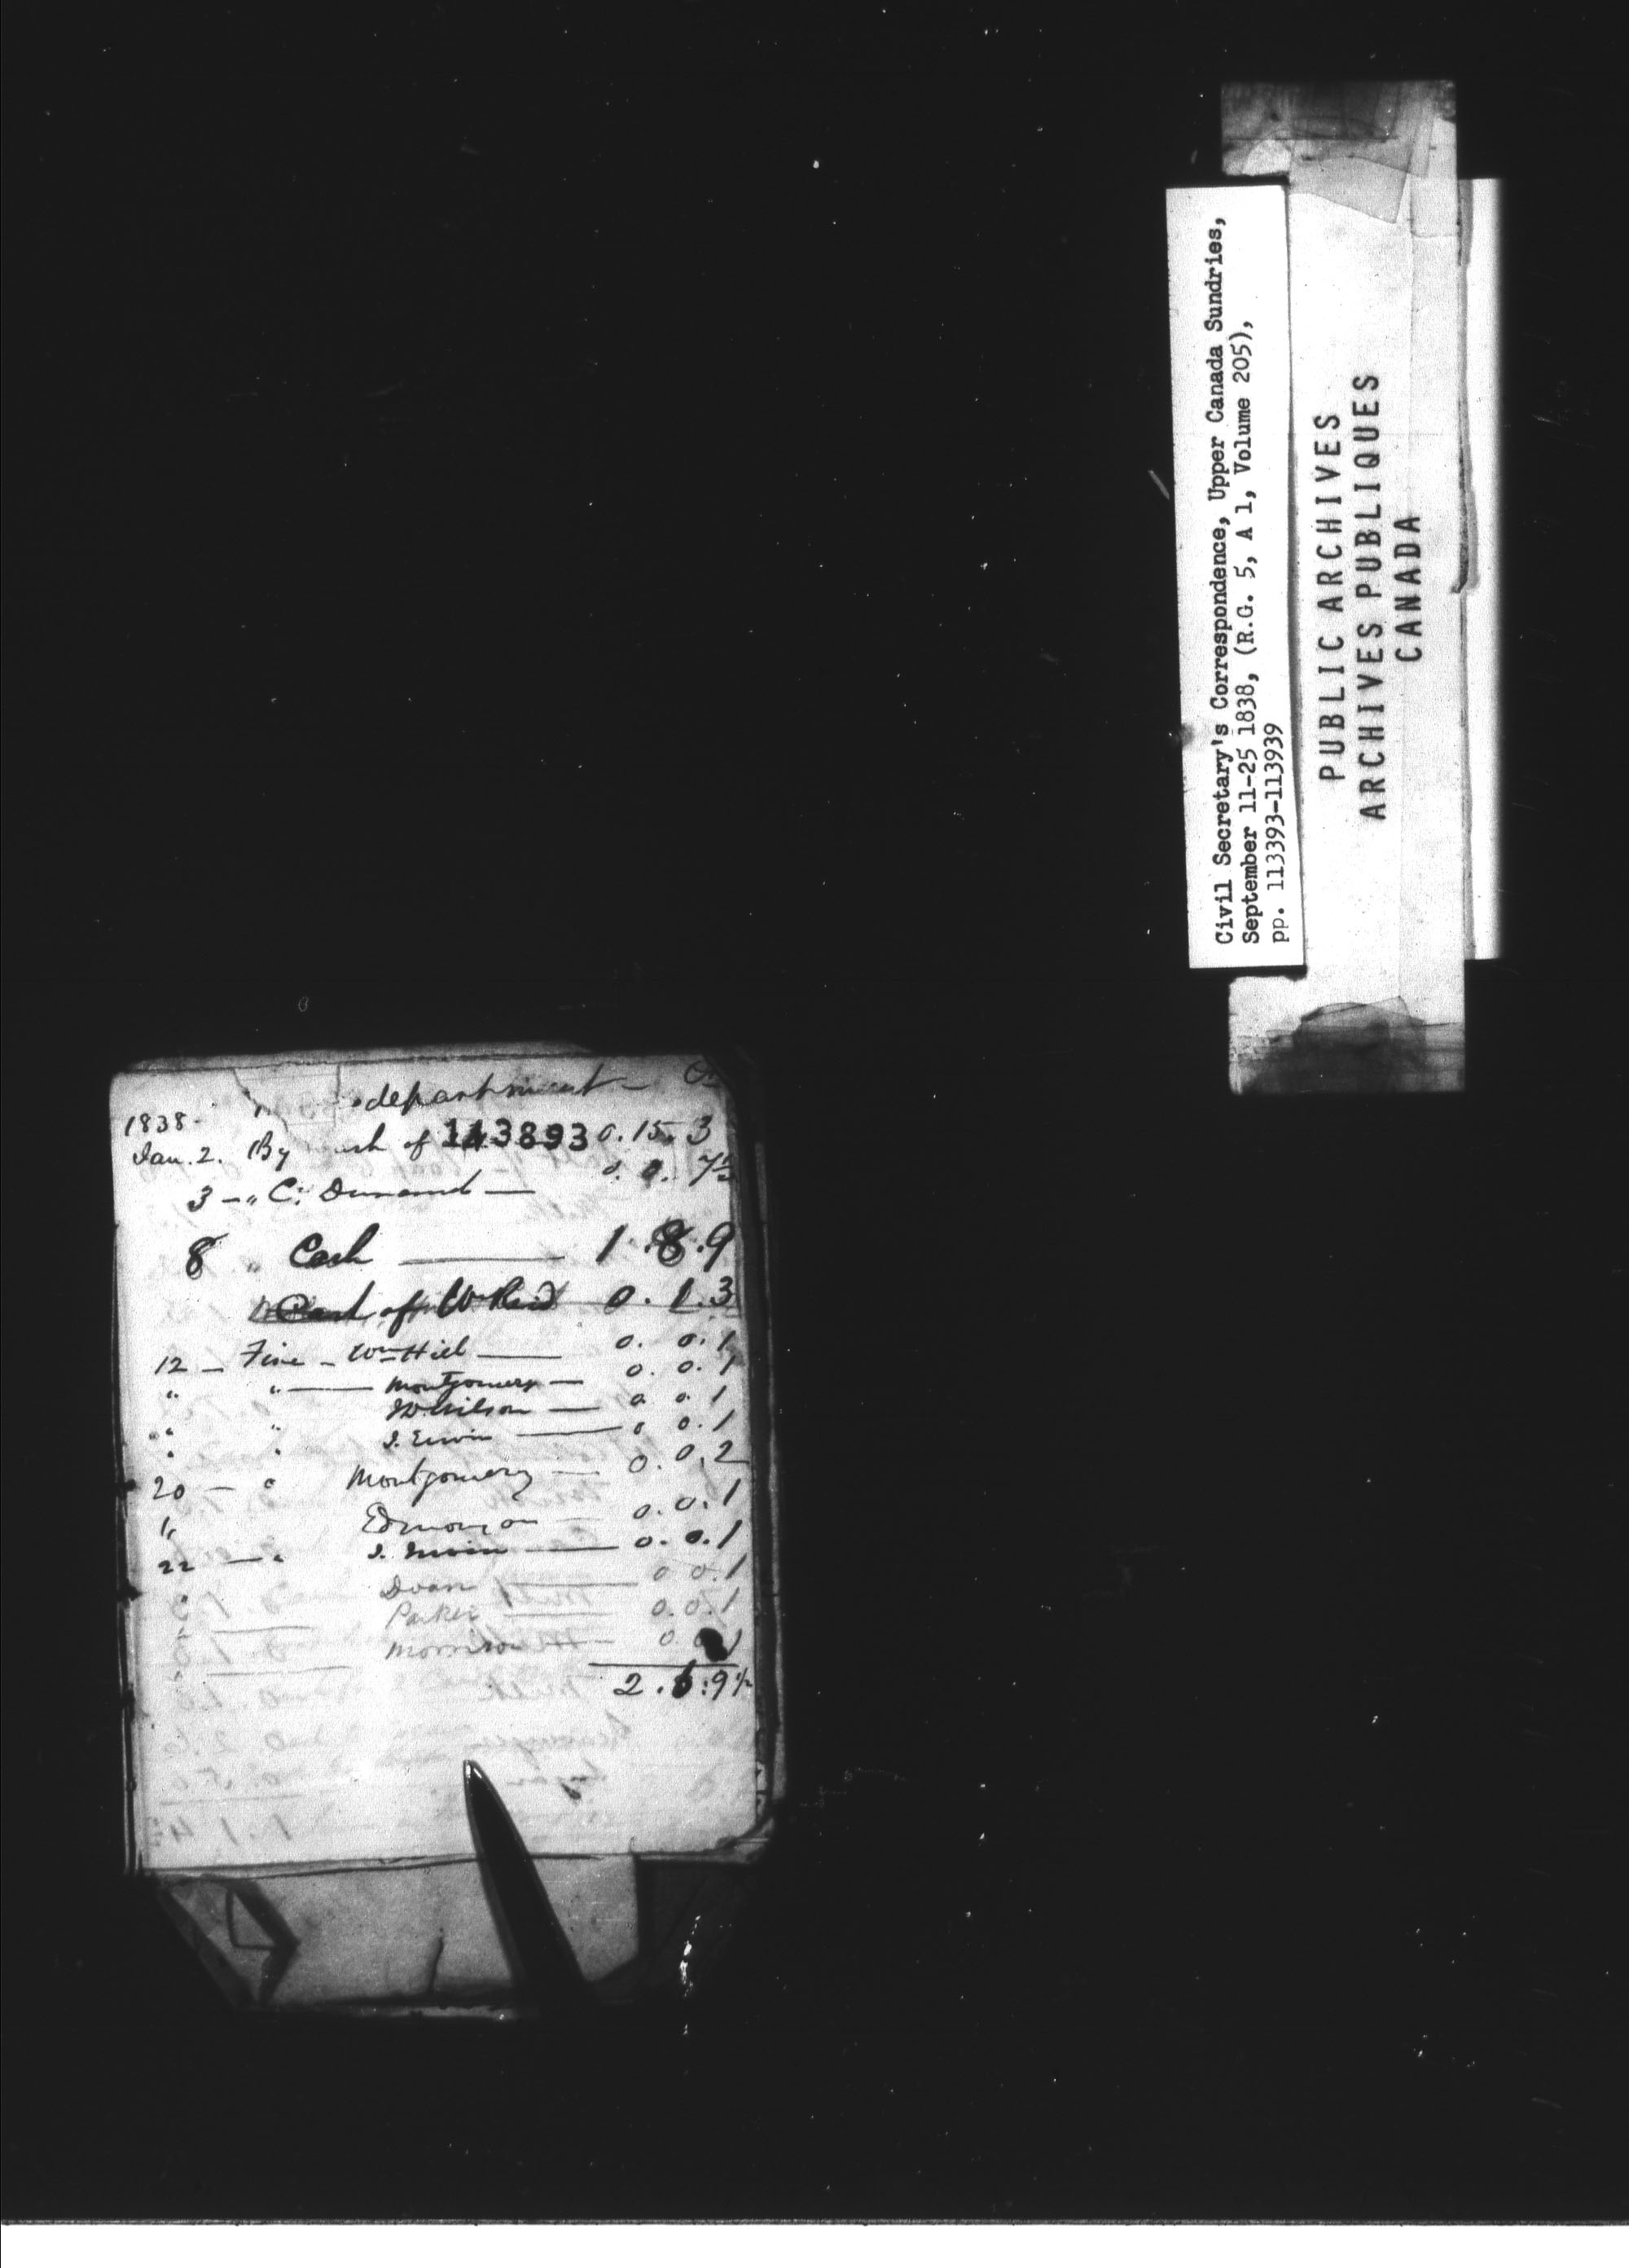 department
1838.
Jan. 2. By Cash of 113893 0.15.3
3 - " C. Durand — 0.0.7½
8 " Cash — 1.8.9
Cash of W Reid 0.1.3
12 - Fine - Wm Hill — 0.0.1
" " — Montgomery — 0.0.1
" " Wilson — 0 0 1
" " J. Erwin — 0 0.1
20 — " Montgomery — 0.0.2
" Edmonson — 0.0.1
22 — " J. Erwin — 0.0.1
" Doan — 0 0.1
Parker — 0.0.1
Morrison — 0.0.1
2.6:9½
Civil Secretary's Correspondence, Upper Canada Sundries,
September 11-25 1838, (R.G. 5, A 1, Volume 205),
pp. 113393-113939
PUBLIC ARCHIVES
ARCHIVES PUBLIQUES
CANADA